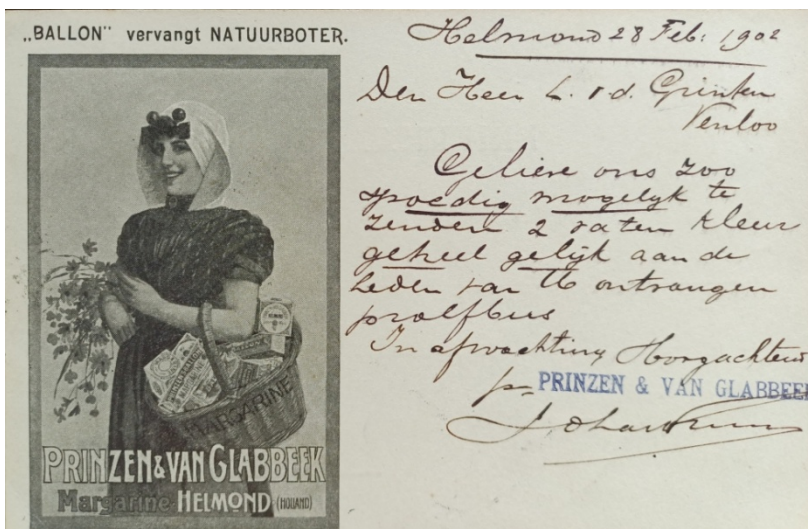 „BALLON" vervangt NATUURBOTER.
MARGARINE
PRINZEN & VAN GLABBEEK
Margarine HELMOND (HOLLAND)
Helmond 28 Feb: 1902
Den Heer L. v d. Grinten
Venloo
Gelieve ons zoo
spoedig mogelijk te
zenden 2 vaten kleur
geheel gelijk aan de
heden van U ontvangen
proefbus
In afwachting Hoogachtend
pr PRINZEN & VAN GLABBEEK